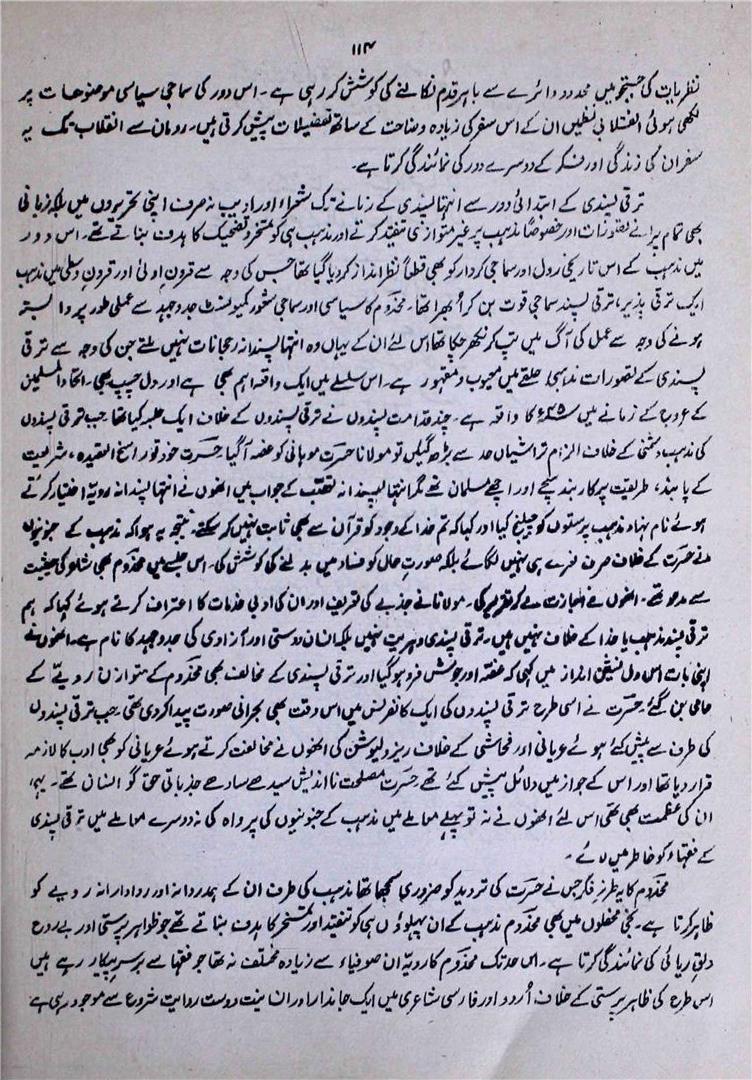 ۱۱۴
نظریات کی جستجو میں محدود دائرے سے باہر قدم نکالنے کی کوشش کر رہی ہے۔ اس دور کی سماجی سیاسی موضوعات پر
لکھی ہوئی انقلابی نظمیں ان کے اس سفر کی زیادہ وضاحت کے ساتھ تفصیلات پیش کرتی ہیں۔ رومان سے انقلاب تک یہ
سفر ان کی زندگی اور فکر کے دوسرے دور کی نمائندگی کرتا ہے۔
ترقی پسندی کے ابتدائی دور سے انتہا پسندی کے زمانے تک شعراء اور ادیب نہ صرف اپنی تحریروں میں بلکہ زبانی
بھی تمام پرانے تصورات اور خصوصاً مذہب پر غیر متوازی تنقید کرتے اور مذہب ہی کو تمسخر و تضحیک کا ہدف بناتے تھے۔ اس دور
میں مذہب کے اس تاریخی رول اور سماجی کردار کو بھی قطعاً نظر انداز کر دیا گیا تھا جس کی وجہ سے قرون اولیٰ اور قرون وسطی میں مذہب
ایک ترقی پذیر، ترقی پسند سماجی قوت بن کر ابھرا تھا۔ مخدوم کا سیاسی اور سماجی شعور کمیونسٹ جدوجہد سے عملی طور پر وابستہ
ہونے کی وجہ سے عمل کی آگ میں تپ کر نکھر چکا تھا اس لئے ان کے یہاں وہ انتہا پسندانہ رجحانات نہیں ملتے جن کی وجہ سے ترقی
پسندی کے تصورات مذہبی حلقے میں محبوب و مقہور ہے۔ اس سلسلے میں ایک واقعہ اہم بھی ہے اور دل چسپ بھی۔ اتحاد المسلمین
کے عروج کے زمانے میں ۴۵ء کا واقعہ ہے۔ چند قدامت پسندوں نے ترقی پسندوں کے خلاف ایک جلسہ کیا تھا جب ترقی پسندوں
کی مذہب دشمنی کے خلاف الزام تراشیاں حد سے بڑھ گئیں تو مولانا حسرت موہانی کو غصہ آگیا۔ حسرت خود تو راسخ العقیدہ، شریعت
کے پابند، طریقت پر کاربند سچے اور اچھے مسلمان تھے مگر انتہا پسندانہ تعصب کے جواب میں انھوں نے انتہا پسندانہ رویہ اختیار کرتے
ہوئے نام نہاد مذہب پرستوں کو چیلنج کیا اور کہا کہ تم خدا کے وجود کو قرآن سے بھی ثابت نہیں کر سکتے۔ نتیجہ یہ ہوا کہ مذہب کے جنونیوں
نے حسرت کے خلاف صرف نعرے ہی نہیں لگائے بلکہ صورت حال کو فساد میں بدلنے کی کوشش کی۔ اس جلسے میں مخدوم بھی شاعر کی حیثیت
سے مدعو تھے۔ انھوں نے اجازت لے کر تقریر کی۔ مولانا نے جذبے کی تعریف اور ان کی ادبی خدمات کا اعتراف کرتے ہوئے کہا کہ ہم
ترقی پسند مذہب یا خدا کے خلاف نہیں ہیں۔ ترقی پسندی دہریت نہیں بلکہ انسان دوستی اور آزادی کی جدوجہد کا نام ہے۔ انھوں نے
اپنی بات اس دل نشیں انداز میں کہی کہ غصہ اور جوش فرو ہوگیا اور ترقی پسندی کے مخالف بھی مخدوم کے متوازن رویے کے
حامی بن گئے۔ حسرت نے اسی طرح ترقی پسندوں کی ایک کانفرنس میں اس وقت بھی بحرانی صورت پیدا کردی تھی جب ترقی پسندوں
کی طرف سے پیش کئے ہوئے عریانی اور فحاشی کے خلاف ریزولیوشن کی انھوں نے مخالفت کرتے ہوئے عریانی کو بھی ادب کا لازمہ
قرار دیا تھا اور اس کے جواز میں دلائل پیش کئے تھے۔ حسرت مصلحت نا اندیش سیدھے سادے جذباتی حق گو انسان تھے۔ یہی
ان کی عظمت بھی تھی اس لئے انھوں نے نہ تو پہلے معاملے میں مذہب کے جنونیوں کی پرواہ کی نہ دوسرے معاملے میں ترقی پسندی
کے فقہاء کو خاطر میں لائے۔
مخدوم کا یہ طرز فکر جس نے حسرت کی تردید کو ضروری سمجھا تھا مذہب کی طرف ان کے ہمدردانہ اور روادارانہ رویے کو
ظاہر کرتا ہے۔ نجی محفلوں میں بھی مخدوم مذہب کے ان پہلوؤں ہی کو تنقید اور تمسخر کا ہدف بناتے تھے جو ظواہر پرستی اور بے روح
دلق ریائی کی نمائندگی کرتا ہے۔ اس حد تک مخدوم کا رویہ ان صوفیاء سے زیادہ مختلف نہ تھا جو فقہا سے برسر پیکار رہے ہیں
اس طرح کی ظاہر پرستی کے خلاف اُردو اور فارسی شاعری میں ایک جاندار اور انسانیت دوست روایت شروع سے موجود رہی ہے